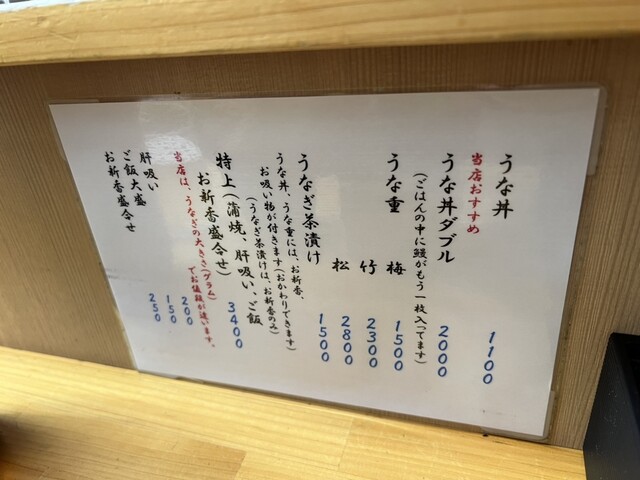 うな丼 1100
当店おすすめ
うな丼ダブル 2000
(ごはんの中に鰻がもう一枚入ってます)
うな重 梅 1500
竹 2300
松 2800
うなぎ茶漬け 1500
うな丼、うな重には、お新香、
お吸い物が付きます(おかわりできます)
(うなぎ茶漬けは、お新香のみ)
特上(蒲焼、肝吸い、ご飯
お新香盛合せ) 3400
当店は、うなぎの大きさ(グラム)
でお値段が違います。
肝吸い 200
ご飯大盛 150
お新香盛合せ 250